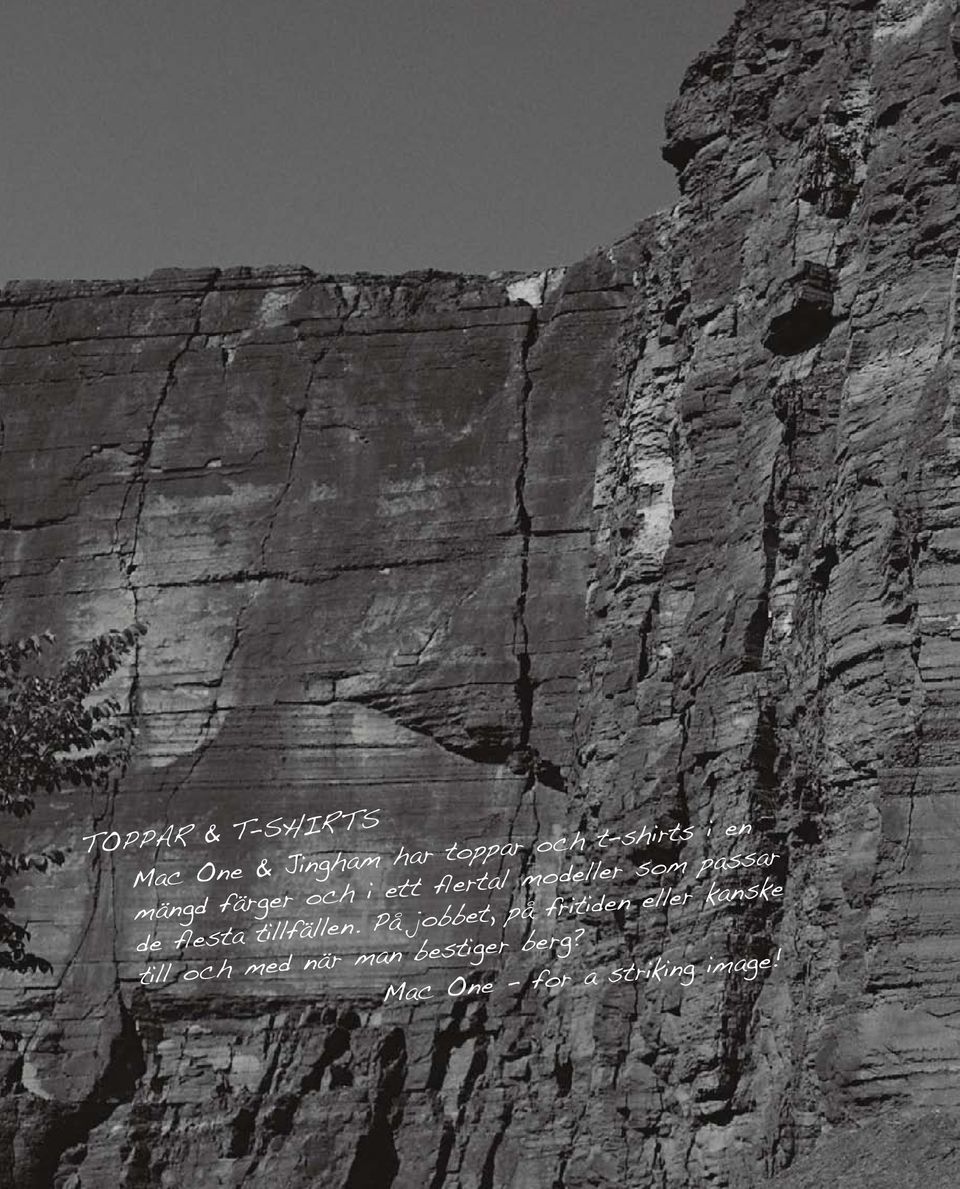 TOPPAR & T-SHIRTS
Mac One & Jingham har toppar och t-shirts i en
mängd färger och i ett flertal modeller som passar
de flesta tillfällen. På jobbet, på fritiden eller kanske
till och med när man bestiger berg?
Mac One - for a striking image!